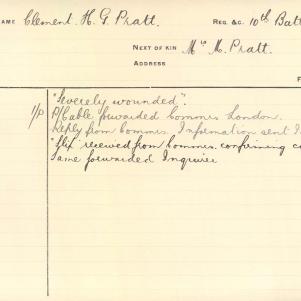 NAME Clement H. G. Pratt REG. &C. 10th Batt
NEXT OF KIN Mrs M. Pratt.
ADDRESS
"Severely wounded".
P/P P/Cable forwarded Commrs London.
Reply from Commrs. Information sent I
received from Commrs. confirming ca
Same forwarded Inquirer